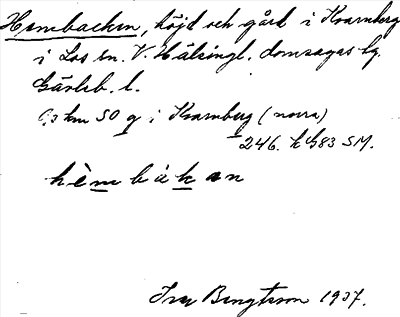 Hembacken, höjd och gård i Kvarnberg
i Los sn. V. Hälsingl. domsagas tg.
Gävleb. l.
0,3 km SO g i Kvarnberg (norra)
246. h G83 SM.
hèmbákan
Bengtsson 1937.